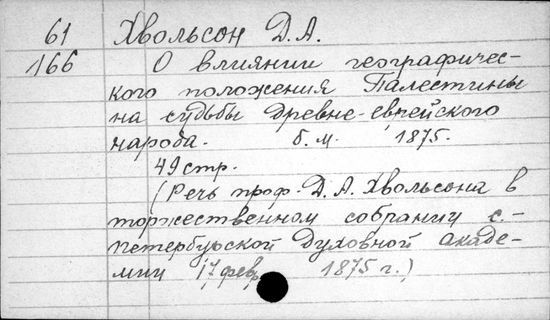 61 Хвольсон Д.А.
166 О влиянии географичес-
кого положения Палестины
на судьбы древне-еврейского
народа. б.м. 1875.
49 стр.
(Речь проф. Д.А. Хвольсона в
торжественном собрании С.-
петербургской Духовной акаде-
мии 17 февр. 1875 г.)